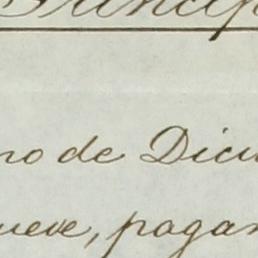 Princip
no de Dici
ueve, pagan